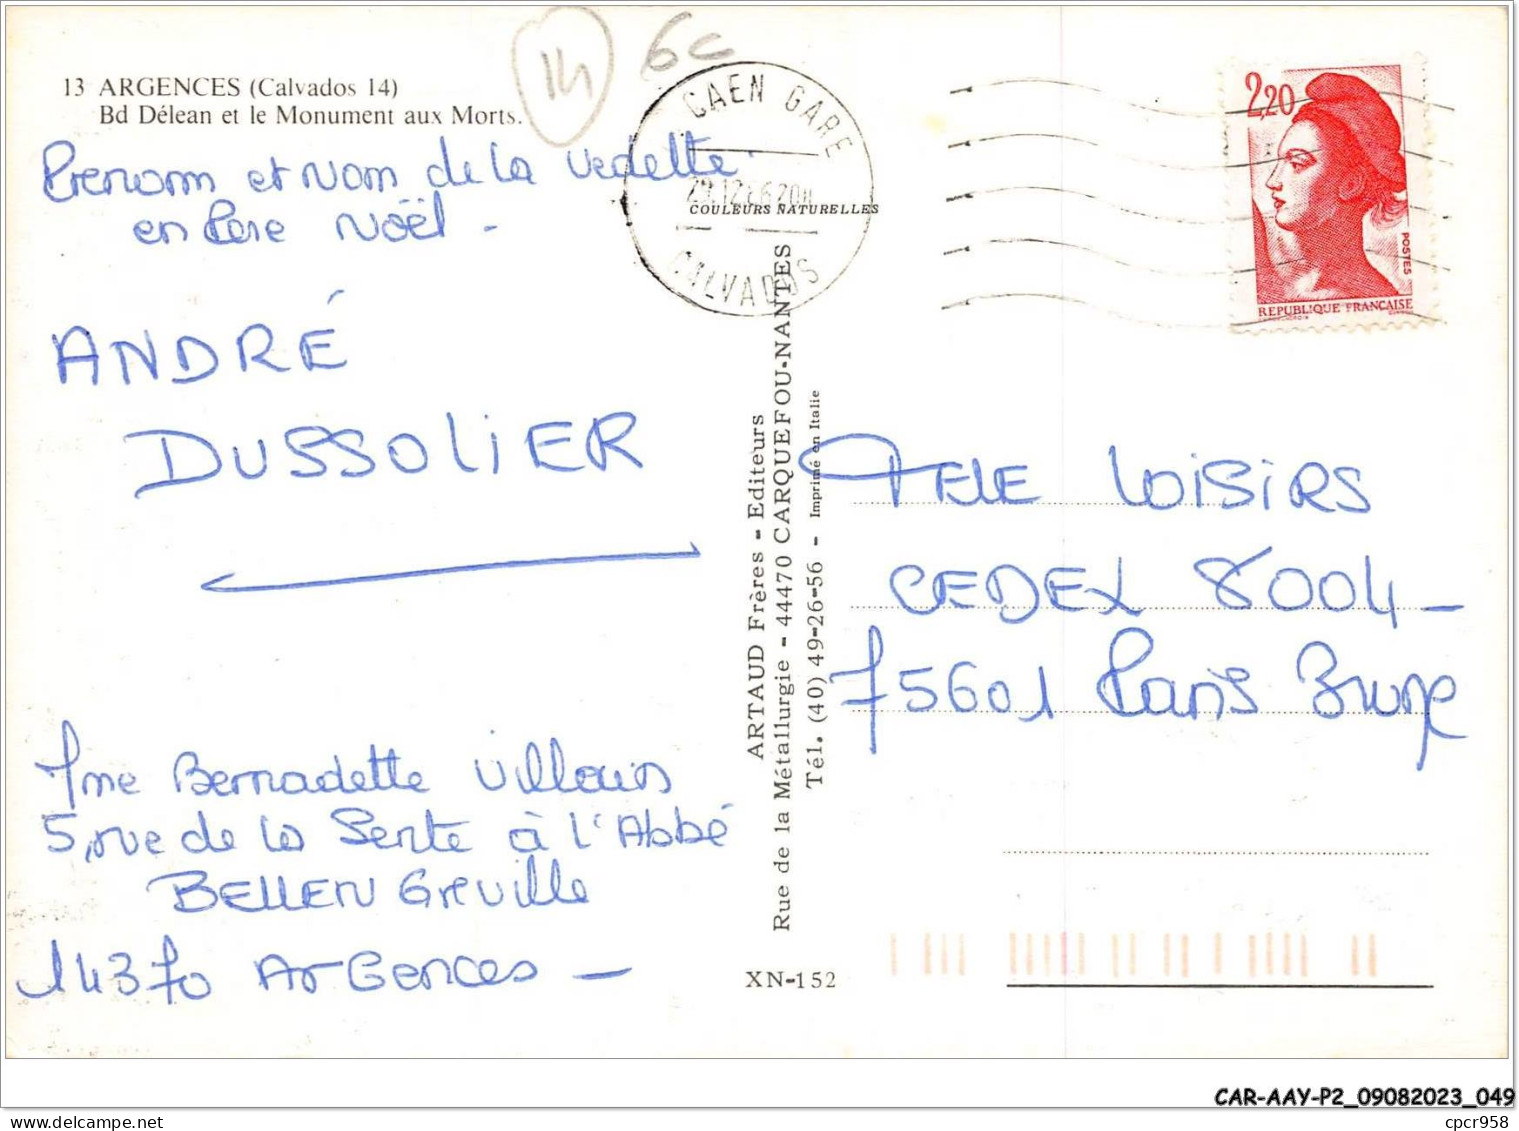 13 ARGENCES (Calvados 14)
Bd Délean et le Monument aux Morts.
14
6c
Prenom et Nom de la vedette
en Père Noël -
ANDRÉ
DUSSOLIER
Mme Bernadette Villouis
5, rue de la Sente à l'Abbé
BELLENGreville
14370 ArGences -
CAEN GARE
COULEURS NATURELLES
CALVADOS
ARTAUD Frères - Editeurs
Rue de la Métallurgie - 44470 CARQUEFOU-NANTES
Tél. (40) 49-26-56 - Imprimé en Italie
XN-152
2,20
POSTES
REPUBLIQUE FRANCAISE
TELE LOISIRS
CEDEX 8004 -
75601 Paris Brune
CAR-AAY-P2_09082023_049
cpcr958